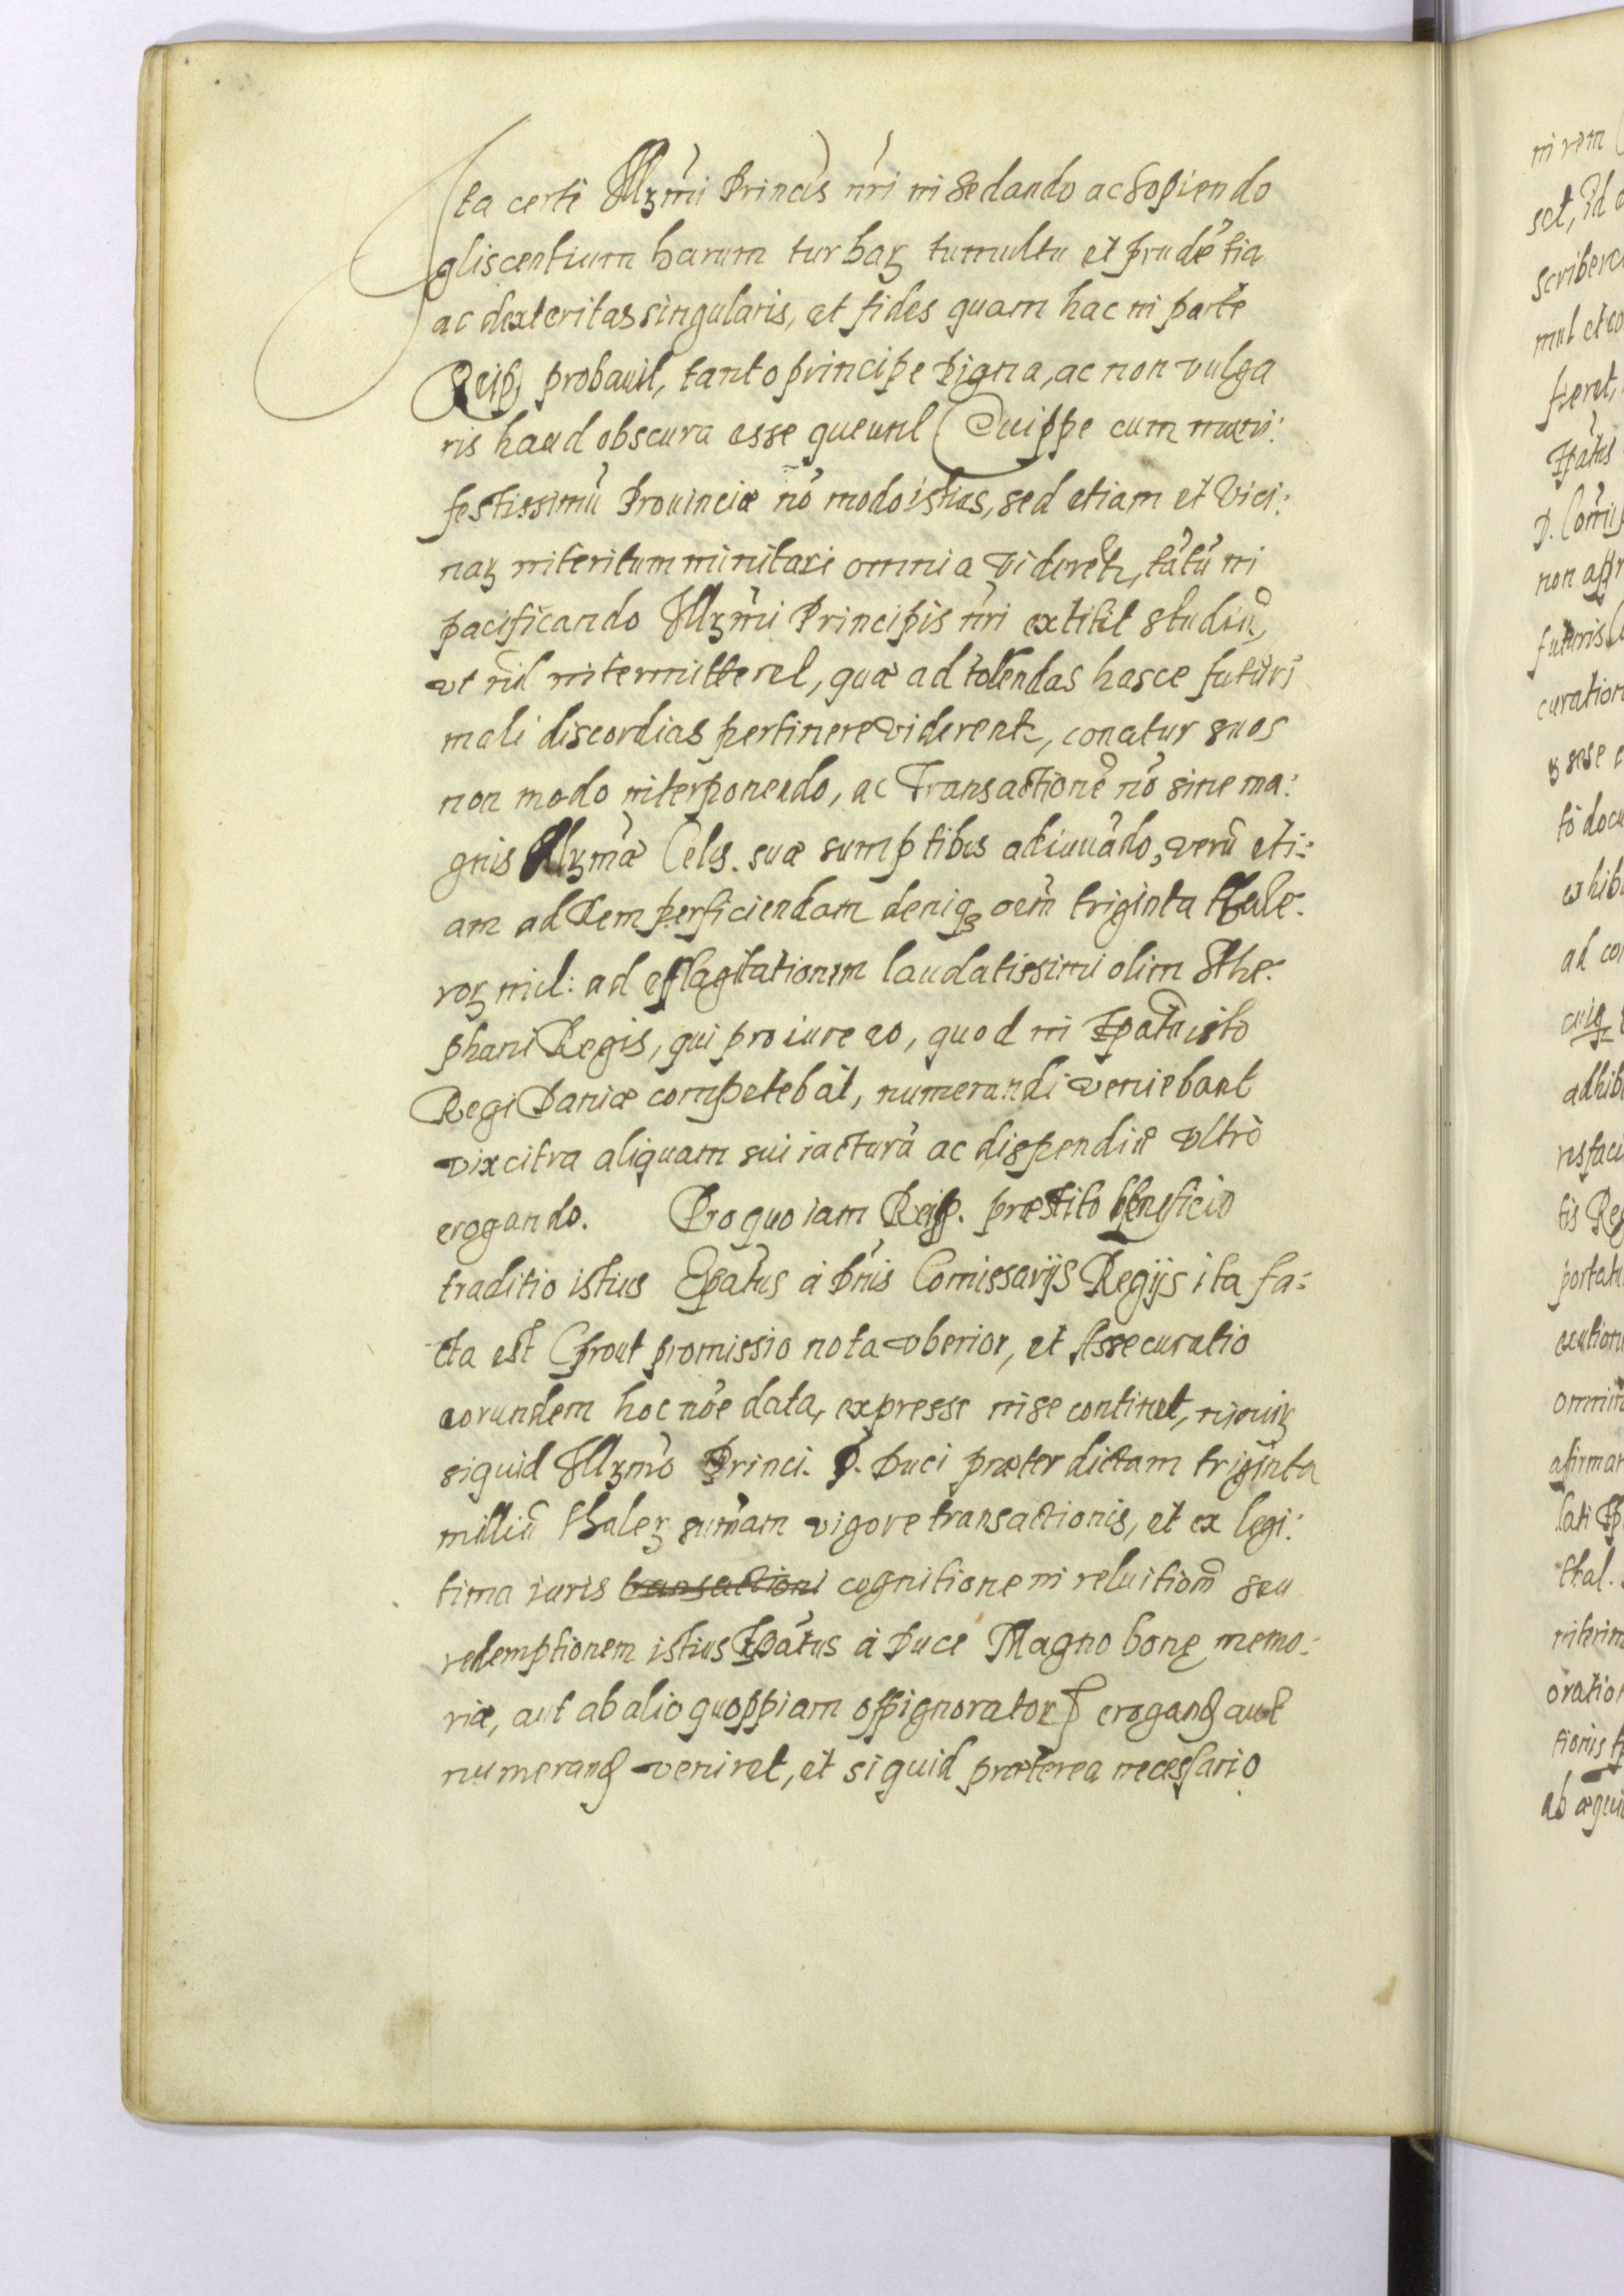 Ita certè Illꝫmi Principis nr̃i in sedando ac sopiendo
gliscentium harum turbaꝝ tumultu et prudẽtia
ac dexteritas singularis, et fides quam hac in parte
Reip. probauit, tanto principe digna, ac non vulga
ris haud obscura esse queunt Quippe cum mani:
festissimũ Prouinciæ nõ modo istius, sed etiam et Vici:
naꝝ interitum minitari omnia videret, tãtũ in
pacificando Illꝫmi Principis nr̃i extitit studiũ,
vt nil intermitteret, quæ ad tollendas hasce futuri
mali discordias pertinere viderent, conatur suos
non modo interponendo, ac Transactionẽ nõ sine ma:
gnis Illꝫmæ Cels. suæ sumptibus adiuuãdo, verũ eti:
am ad rem perficiendam deniqꝫ oem̃ triginta thale:
roꝝ mil: ad efflagitationem laudatissimi olim Ste:
phani Regis, qui pro iure eo, quod in Ep̃atu isto
Regi Daniæ competebat, numerandi veniebant
vix citra aliquam sui iacturã ac dispendiũ vltrò
erogando. Pro quo iam Reip. præstito beneficio
traditio istius Ep̃atus à Dnis Comissarijs Regijs ita fa:
cta est prout promissio nota vberior, et Assecuratio
eorundem hoc nõe data, expresse in se continet,
siquid Illꝫmo Princi. D. Duci præter dictam triginta
milliũ thaleꝝ sum̃am vigore transactionis, et ex legi:
tima iuris transactioni cognitione in reluitionẽ seu
redemptionem istius Ep̃atus à Duce Magno bonę memo:
riæ, aut ab alio quoppiam oppignorator erogand aut
numerand veniret, et siquid præterea necessario
in rem
set, id
scriberc
mul et co
fieret,
Ep̃atus
D. Com̃is
non app
futuris
curation
sese
tõ docu
exhib
ad co
cuiq
adhib
tis Reg
portatu
ecution
omnin
afirmar
lati Ep
thal.
interim
oration
tionis
ab æqui